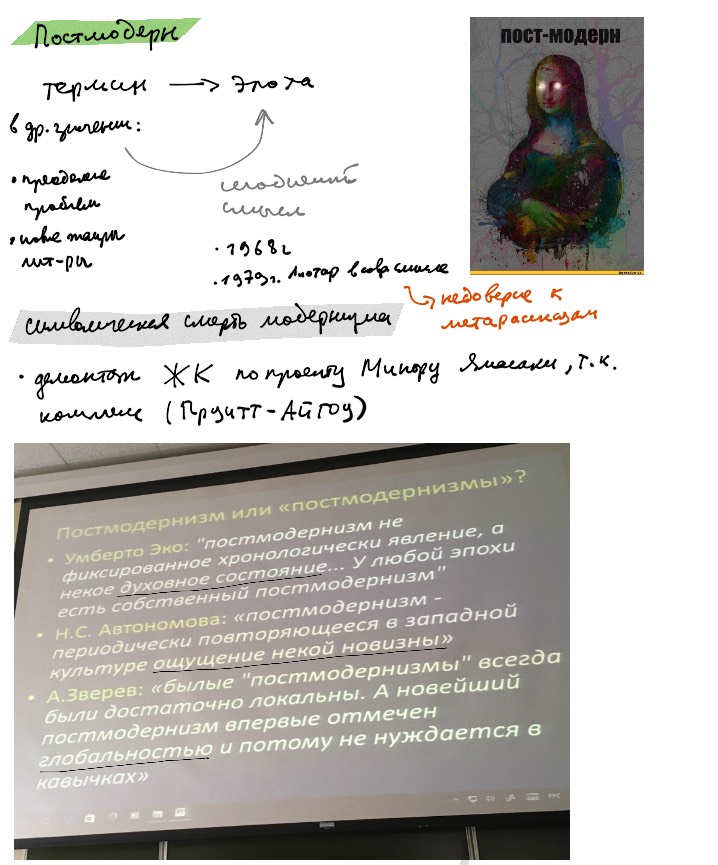 Постмодерн
термин → эпоха
в др. значении:
• преодоление
проблем
• новые жанры
лит-ры
сегодняшний
смысл
• 1968г
• 1979г. Лиотар в совр. смысле
недоверие к
метарассказам
пост-модерн
символическая смерть модернизма
• демонтаж ЖК по проекту Минору Ямасаки, т.к.
комплекс (Пруитт-Айгоу)
Постмодернизм или «постмодернизмы»?
• Умберто Эко: "постмодернизм не
фиксированное хронологически явление, а
некое духовное состояние... У любой эпохи
есть собственный постмодернизм"
• Н.С. Автономова: «постмодернизм -
периодически повторяющееся в западной
культуре ощущение некой новизны»
• А.Зверев: «былые "постмодернизмы" всегда
были достаточно локальны. А новейший
постмодернизм впервые отмечен
глобальностью и потому не нуждается в
кавычках»
РУС